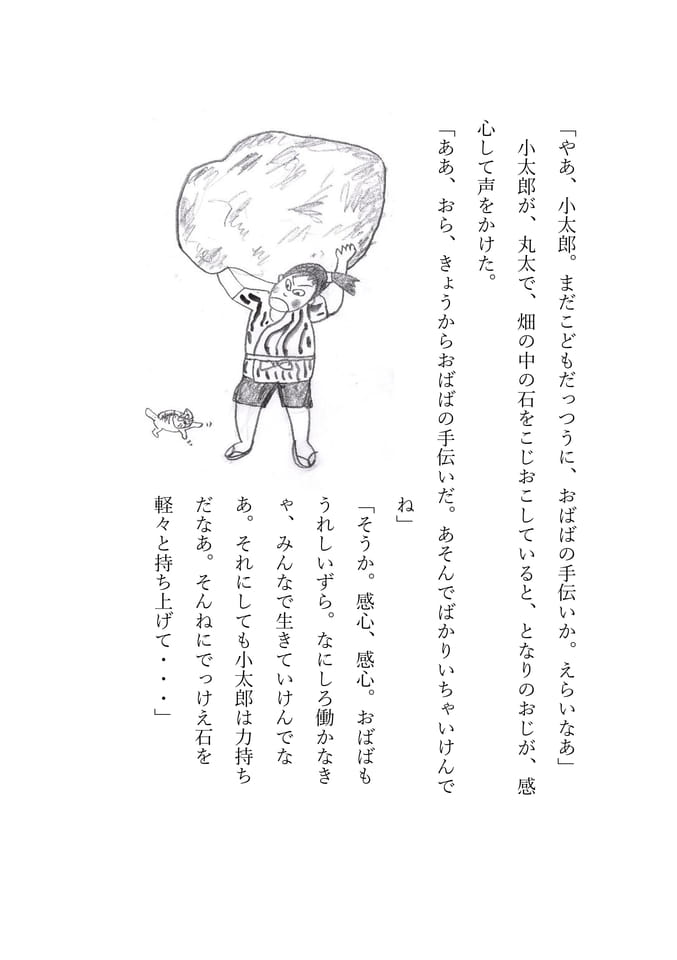 「やあ、小太郎。まだこどもだっつうに、おばばの手伝いか。えらいなあ」
小太郎が、丸太で、畑の中の石をこじおこしていると、となりのおじが、感
心して声をかけた。
「ああ、おら、きょうからおばばの手伝いだ。あそんでばかりいちゃいけんで
ね」
「そうか。感心、感心。おばばも
うれしいずら。なにしろ働かなき
ゃ、みんなで生きていけんでな
あ。それにしても小太郎は力持ち
だなあ。そんねにでっけえ石を
軽々と持ち上げて・・・」